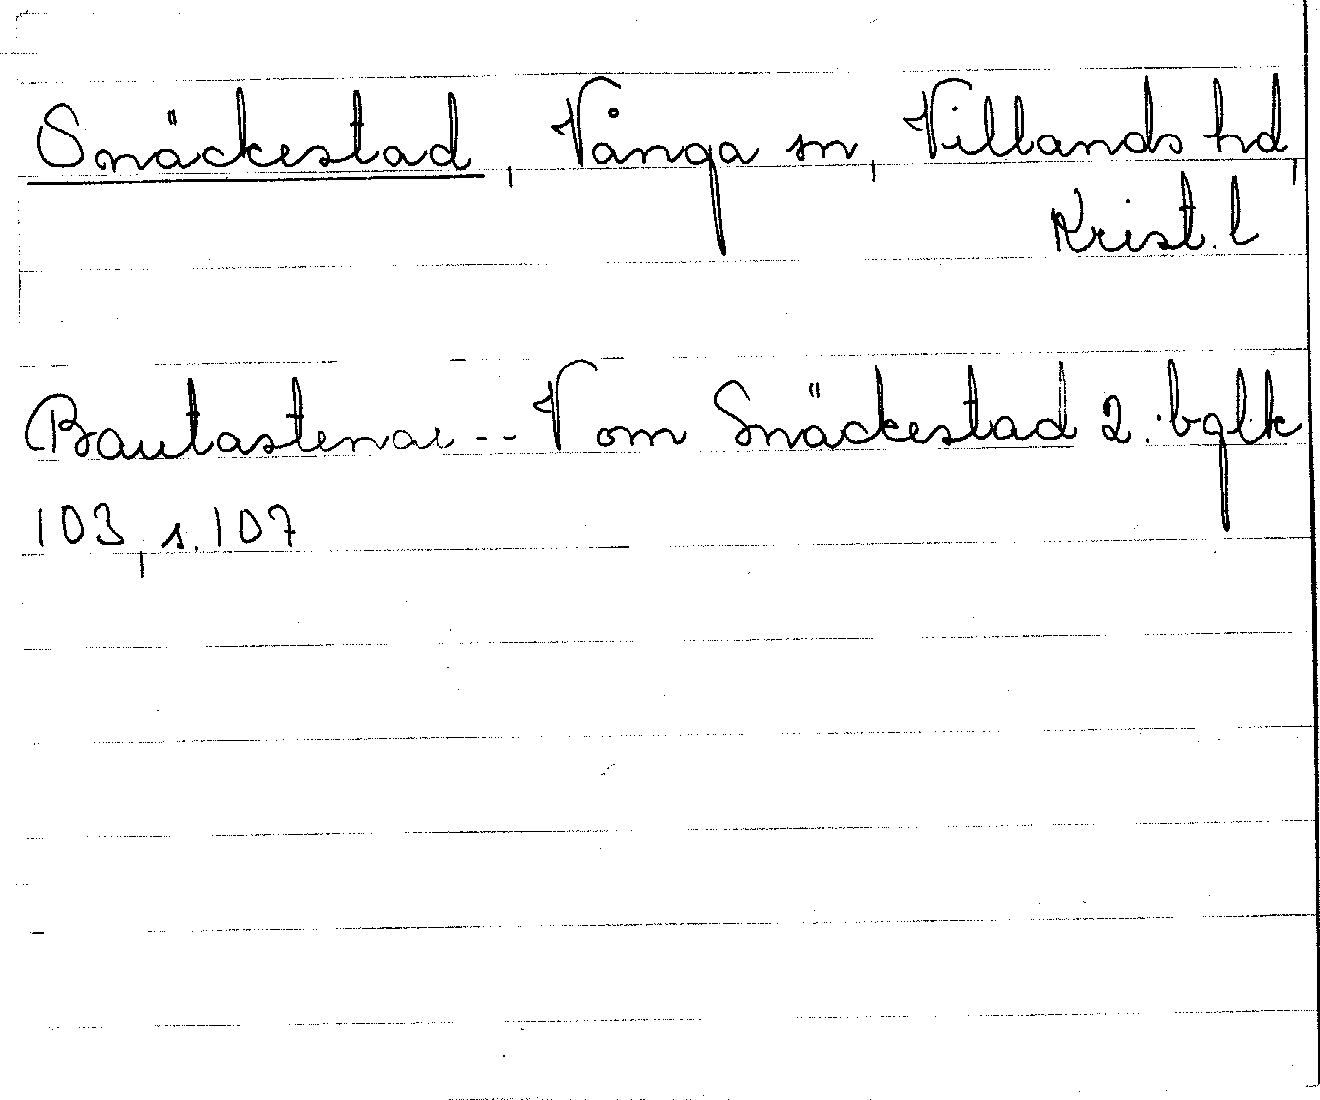 Snäckestad, Vånga sn, Villands hd,
Krist. l
Bautastenar -- V om Snäckestad 2. bglk
103, s. 107